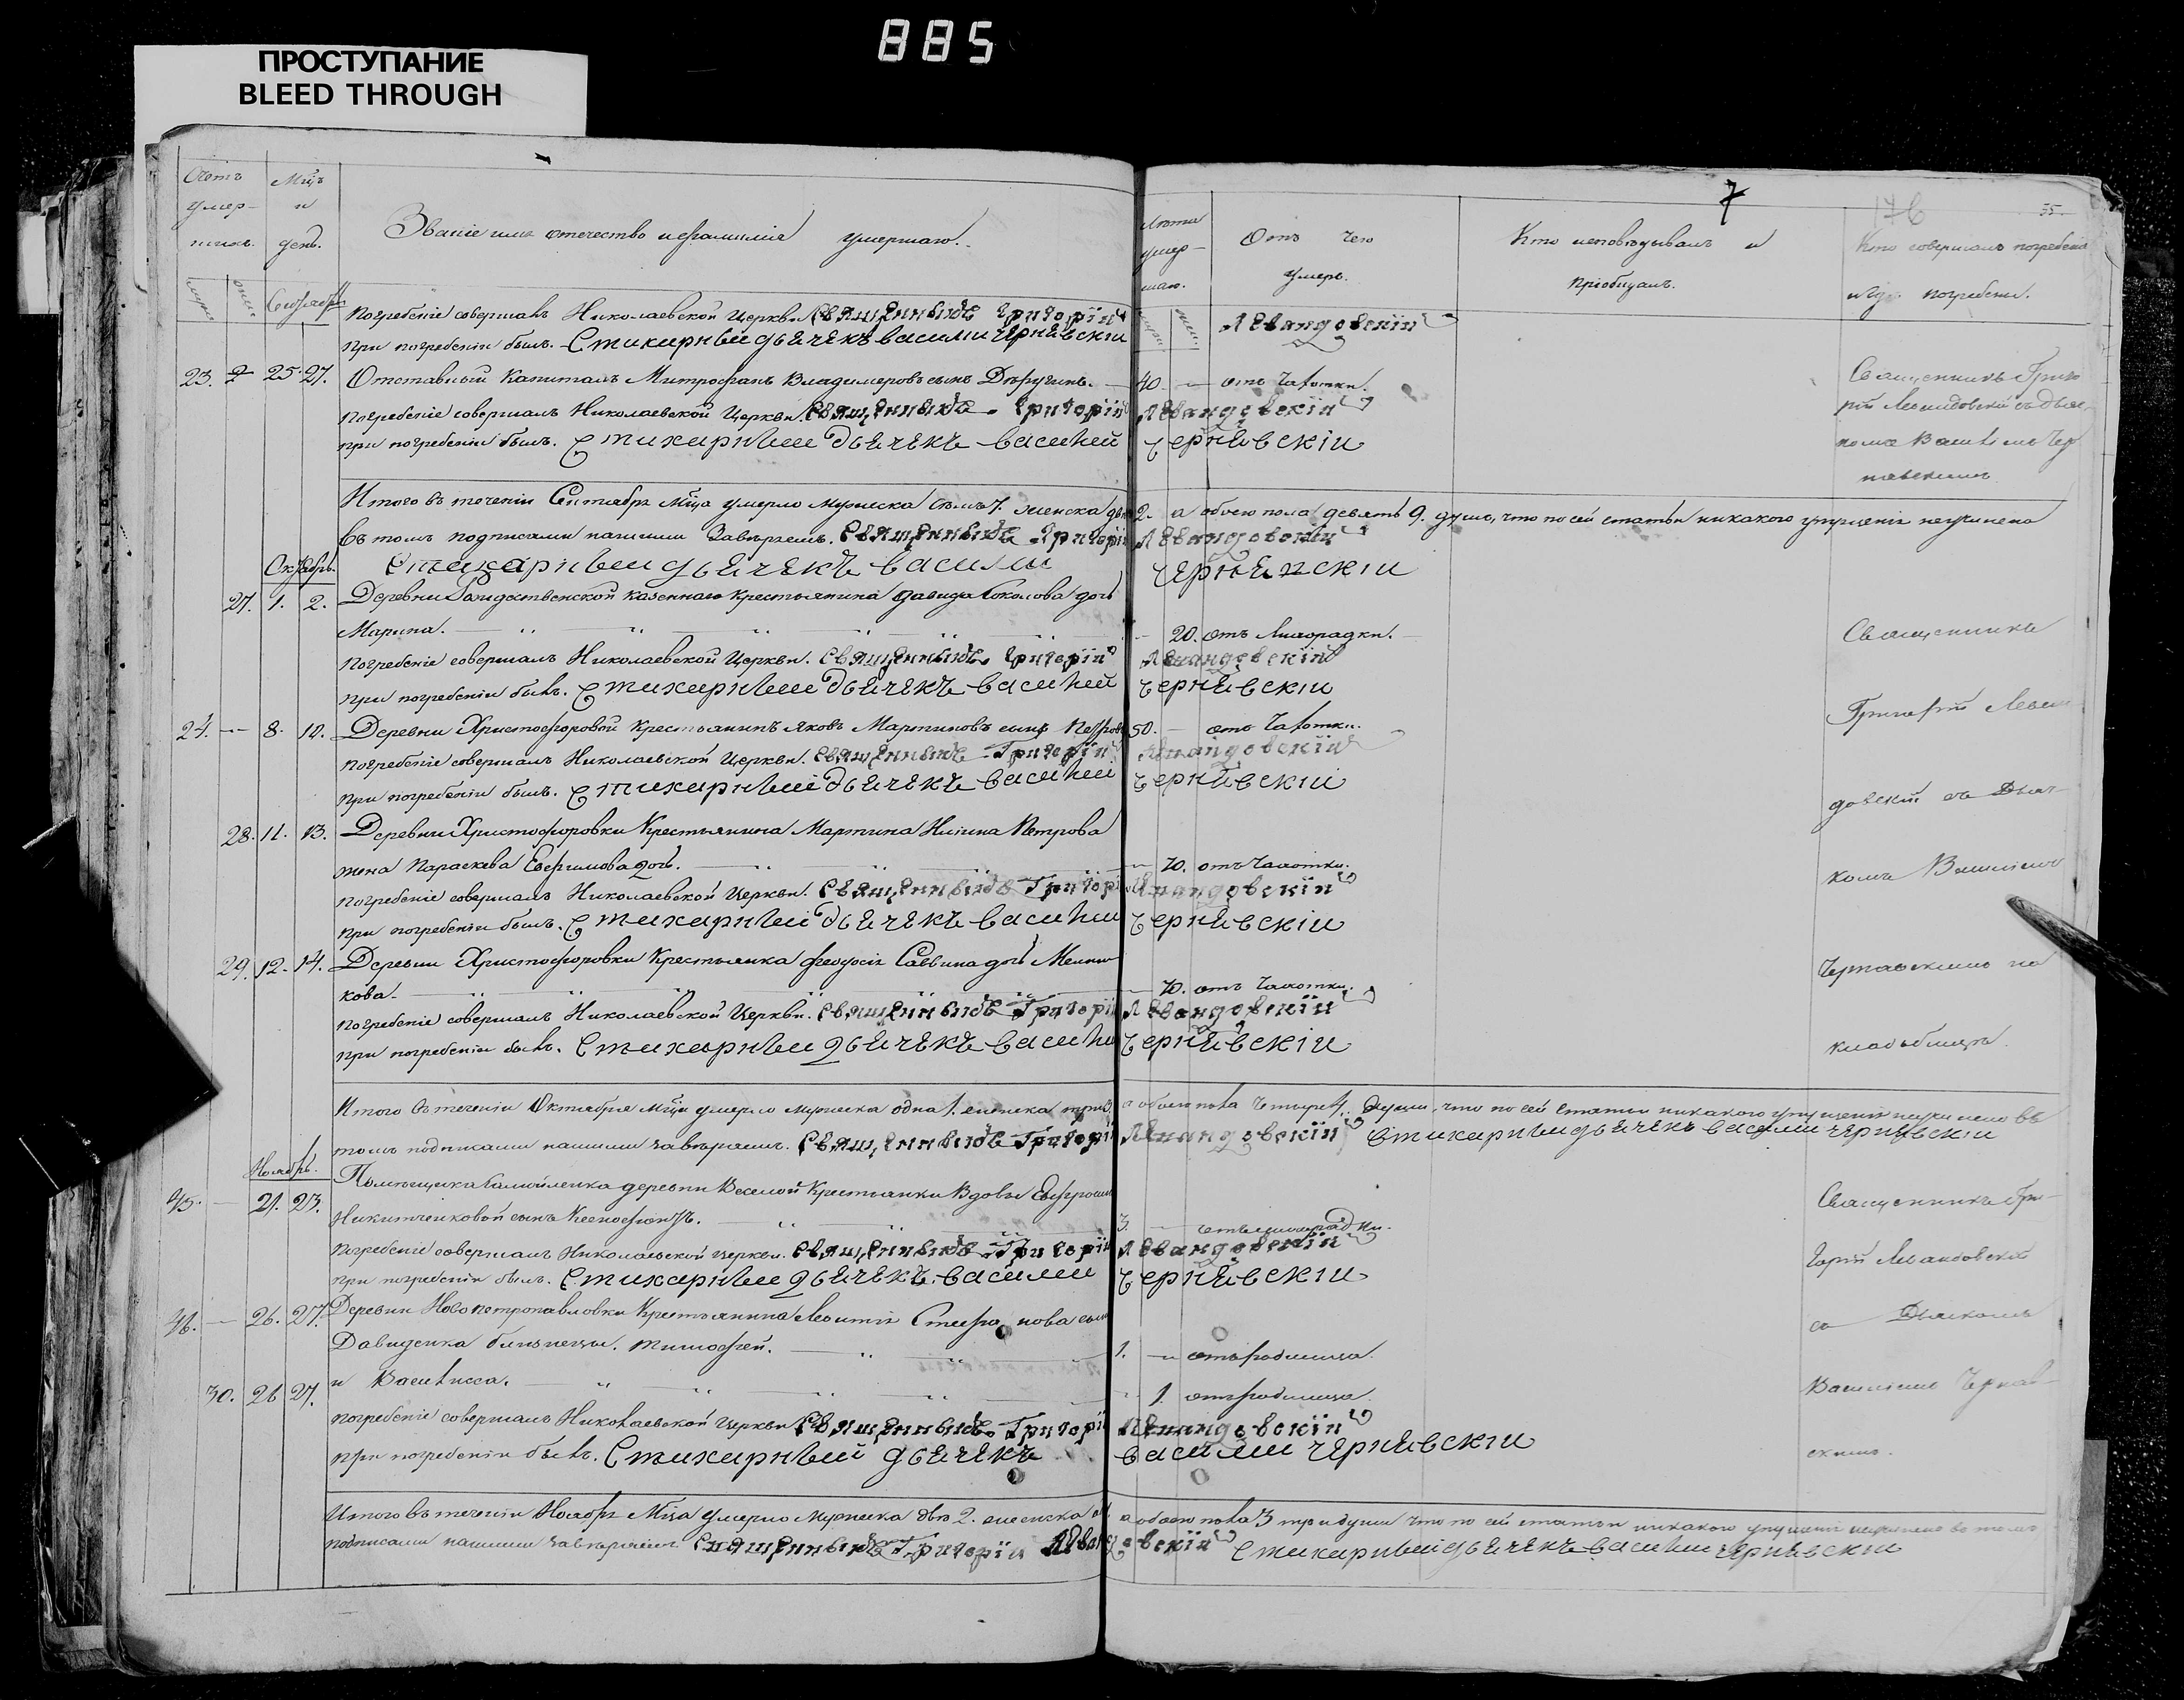 885
ПРОСТУПАНИЕ
BLEED THROUGH
7
176
35.
Счетъ умер- шихъ.
Мцъ и день.
Званіе имя отечество и фамилія умершаго.
Лѣта умер- шаго.
Отъ чего умеръ.
Кто исповѣдывалъ и пріобщалъ.
Кто совершалъ погребеніе и гдѣ погребены.
Сентябрь
Погребеніе совершалъ Николаевской Церкви Священникъ Григорій Левандовскій
при погребеніи былъ. Стихарный дьячекъ Василій Чернявскій
23. 2 25. 27. Отставный Капитанъ Митрофанъ Владимеровъ сынъ 40. — отъ Чахотки.
Погребеніе совершалъ Николаевской Церкви. Священникъ Григорій Левандовскій
при погребеніи былъ. Стихарный дьячекъ Василій Чернявскій
Священникъ Григо
рій Левандовскій съ Дьяч-
комъ Василіемъ Чер
нявскимъ
Итого въ теченіи Сентября мца умерло мужеска семь 7. женска две 2. а обоего пола девять 9. душъ, что по сей статьи никакого упущенія неучинено
Въ томъ подписами нашими Завѣряемъ. Священникъ Григорій Левандовскій
Стихарный дьячекъ Василій Чернявскій
Октябрь.
27. 1. 2. Деревни Рождественской казеннаго крестьянина Давида Соколова дочь
Марина. — 20. отъ Лихорадки.
Погребеніе совершалъ Николаевской Церкви. Священникъ Григорій Левандовскій
при погребеніи былъ. Стихарный дьячекъ Василій Чернявскій
24. — 8. 10. Деревни Христофоровой крестьянинъ Яковъ Мартиновъ сынъ Петровъ 50. — отъ Чахотки.
Погребеніе совершалъ Николаевской Церкви. Священникъ Григорій Левандовскій
при погребеніи былъ. Стихарный дьячекъ Василій Чернявскій
28. 11. 13. Деревни Христофоровки Крестьянина Мартина Петрова
жена Параскева Евфимова дочь. — 70. отъ Чахотки.
Погребеніе совершалъ Николаевской Церкви. Священникъ Григорій Левандовскій
при погребеніи былъ. Стихарный дьячекъ Василій Чернявскій
29. 12. 14. Деревни Христофоровки Крестьянка Феодосія Саввина дочь
кова. — 70. отъ Чахотки.
Погребеніе совершалъ Николаевской Церкви. Священникъ Григорій Левандовскій
при погребеніи былъ. Стихарный дьячекъ Василій Чернявскій
Священникъ
Григорій Леван
довскій съ Дьяч-
комъ Василіемъ
Чернявскимъ на
кладбищѣ.
Итого въ теченіи Октября мца умерло мужеска одна 1. женска три 3. а обоего пола четыре 4. души, что по сей статьи никакого упущенія неучинено въ
томъ подписами нашими завѣряемъ. Священникъ Григорій Левандовскій Стихарный дьячекъ Василій Чернявскій
Ноябрь.
25. — 21. 23. Помѣщика деревни Веселой Крестьянки Вдовы
Никитченковой сынъ Ксенофонтъ. 3. — отъ лихорадки.
Погребеніе совершалъ Николаевской Церкви. Священникъ Григорій Левандовскій
при погребеніи былъ. Стихарный дьячекъ Василій Чернявскій
26. — 26. 27. Деревни Новопетропавловки Крестьянина Леонтія Стефанова сына
Давиденка близнецы. Тимофей. 1. — отъ родимца.
30. 26 27. и Василисса. — 1. отъ родимца
погребеніе совершалъ Николаевской Церкви Священникъ Григорій Левандовскій
при погребеніи былъ. Стихарный дьячекъ Василій Чернявскій
Священникъ Гри-
горій Левандовскій
съ Дьячкомъ
Василіемъ Черняв-
скимъ.
Итого въ теченіи Ноября мца умерло мужеска два 2. женска а обоего пола 3 три души что по сей статьи никакого упущенія неучинено въ томъ
подписами нашими завѣряемъ Священникъ Григорій Левандовскій Стихарный дьячекъ Василій Чернявскій